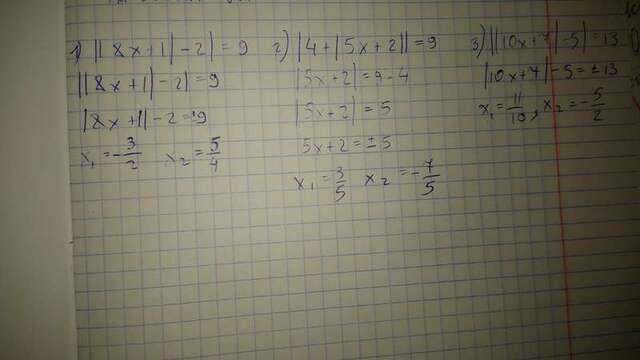 1) ||8x+1|-2|=9
||8x+1|-2|=9
|8x+1|-2=±9
x₁=-3/2 x₂=5/4
2) |4+|5x+2||=9
|5x+2|=9-4
|5x+2|=5
5x+2=±5
x₁=3/5 x₂=-7/5
3) ||10x+7|-5|=13
|10x+7|-5=±13
x₁=11/10, x₂=-5/2